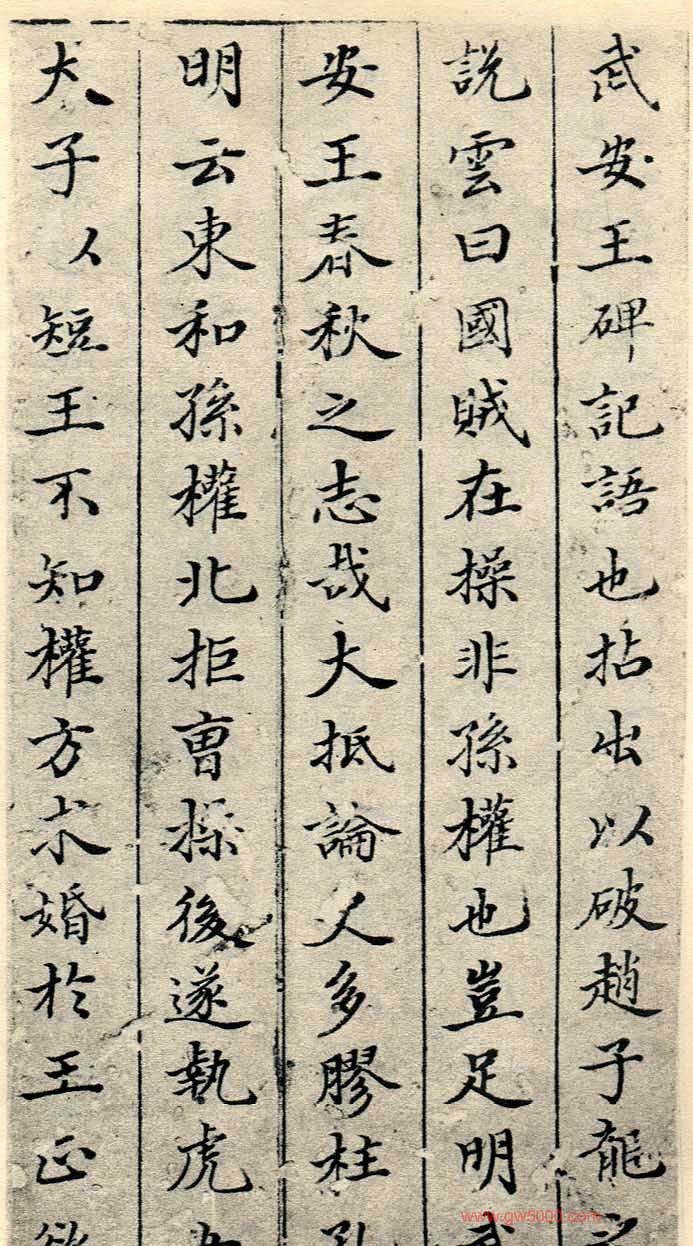 武安王碑記語也拈出以破趙子龍之
說雲曰國賊在操非孫權也豈足明武
安王春秋之志哉大抵論人多膠柱孔
明云東和孫權北拒曹操後遂執虎女
犬子以短王不知權方求婚於王正欲
www.gw5000.com